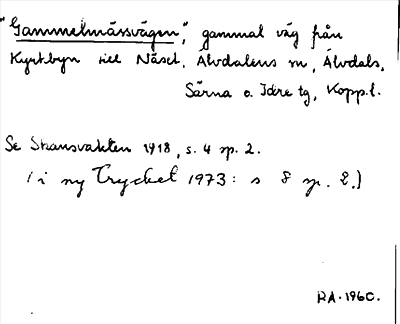 "Gammelmässvägen", gammal väg från
Kyrkbyn till Näset. Älvdalens sn, Älvdals,
Särna o. Idre tg, Kopp.l.
Se Skansvakten 1918, s. 4 sp. 2.
(i ny Trycket 1973: s 8 sp. 2.)
RA. 1960.